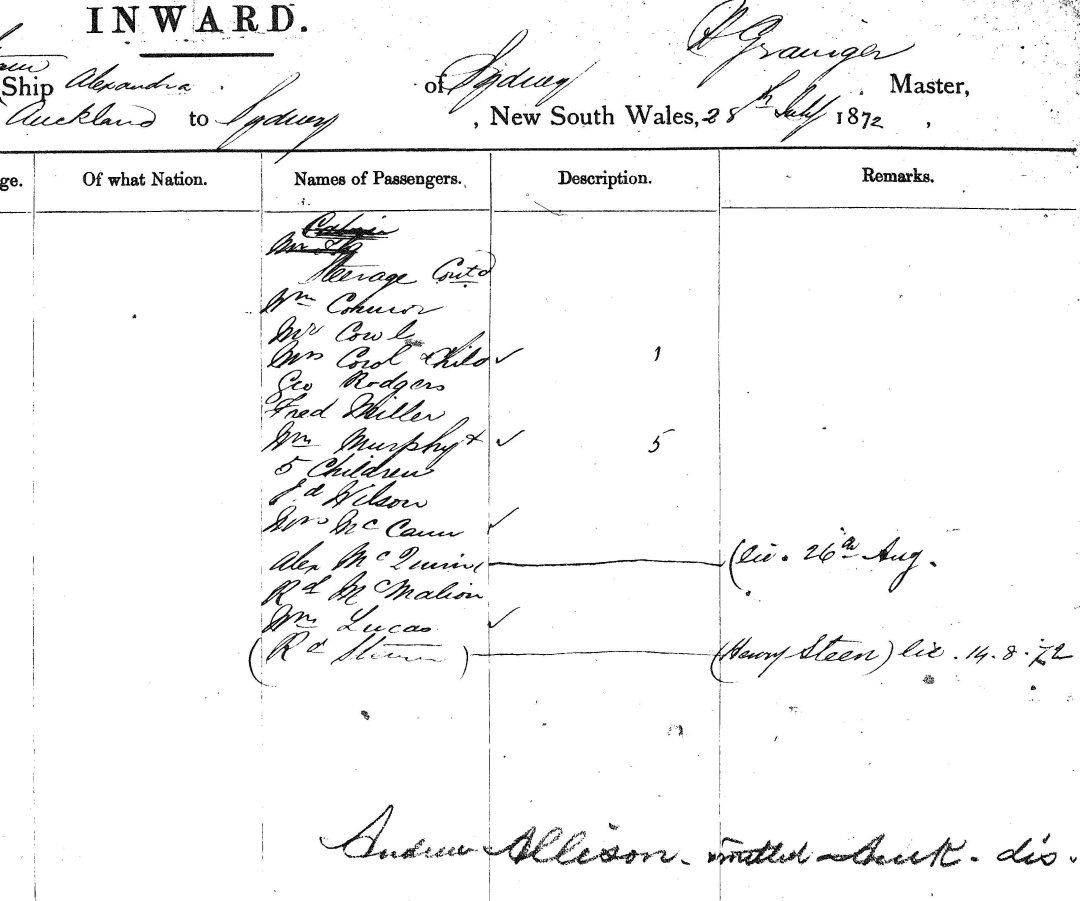 INWARD.
H Grainger
Ship Alexandra of Sydney Master,
Auckland to Sydney, New South Wales, 28th July 1872,
ge. Of what Nation. Names of Passengers. Description. Remarks.
Cabin
Mr &
Steerage Contd
Wm Connor
Mr Cowl
Mrs Cowl & Child ✓ 1
Geo Rodgers
Fred Miller
Wm Murphy & ✓ 5
5 Children
Jd Wilson
Mrs McCann ✓
Alex McQuinn (lic. 26th Aug.
Rd McMahon
Wm Lucas ✓
(Rd Steen) (Henry Steen) lic. 14.8.72
Andrew Allison - omitted - drunk - dis.